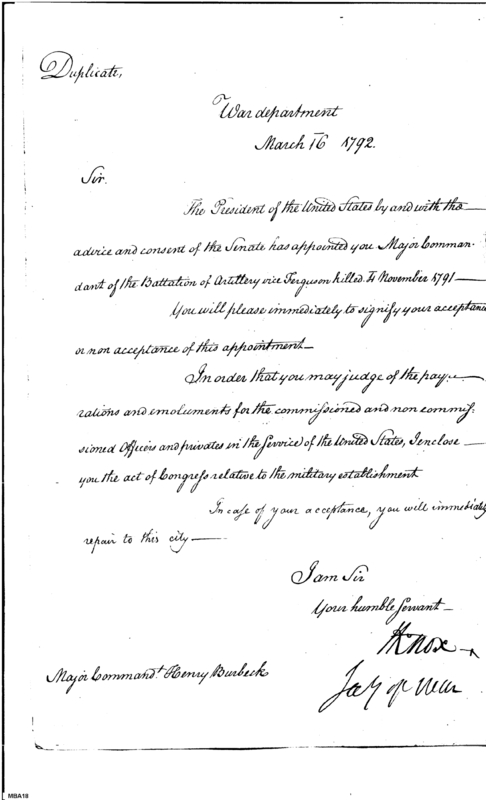 Duplicate,
War department
March 16 1792.
Sir.
The President of the United States by and with the
advice and consent of the Senate has appointed you Major Comman-
dant of the Battalion of Artillery vice Ferguson killed 4 November 1791—
You will please immediately to signify your acceptance
or non acceptance of this appointment—
In order that you may judge of the pay—
rations and emoluments for the commissioned and non commis-
sioned Officers and privates in the Service of the United States, I enclose—
you the act of Congress relative to the military establishment
In case of your acceptance, you will immediately
repair to this city—
I am Sir
Your humble Servant—
HKnox
Secy of War
Major Commandt. Henry Burbeck
MBA18